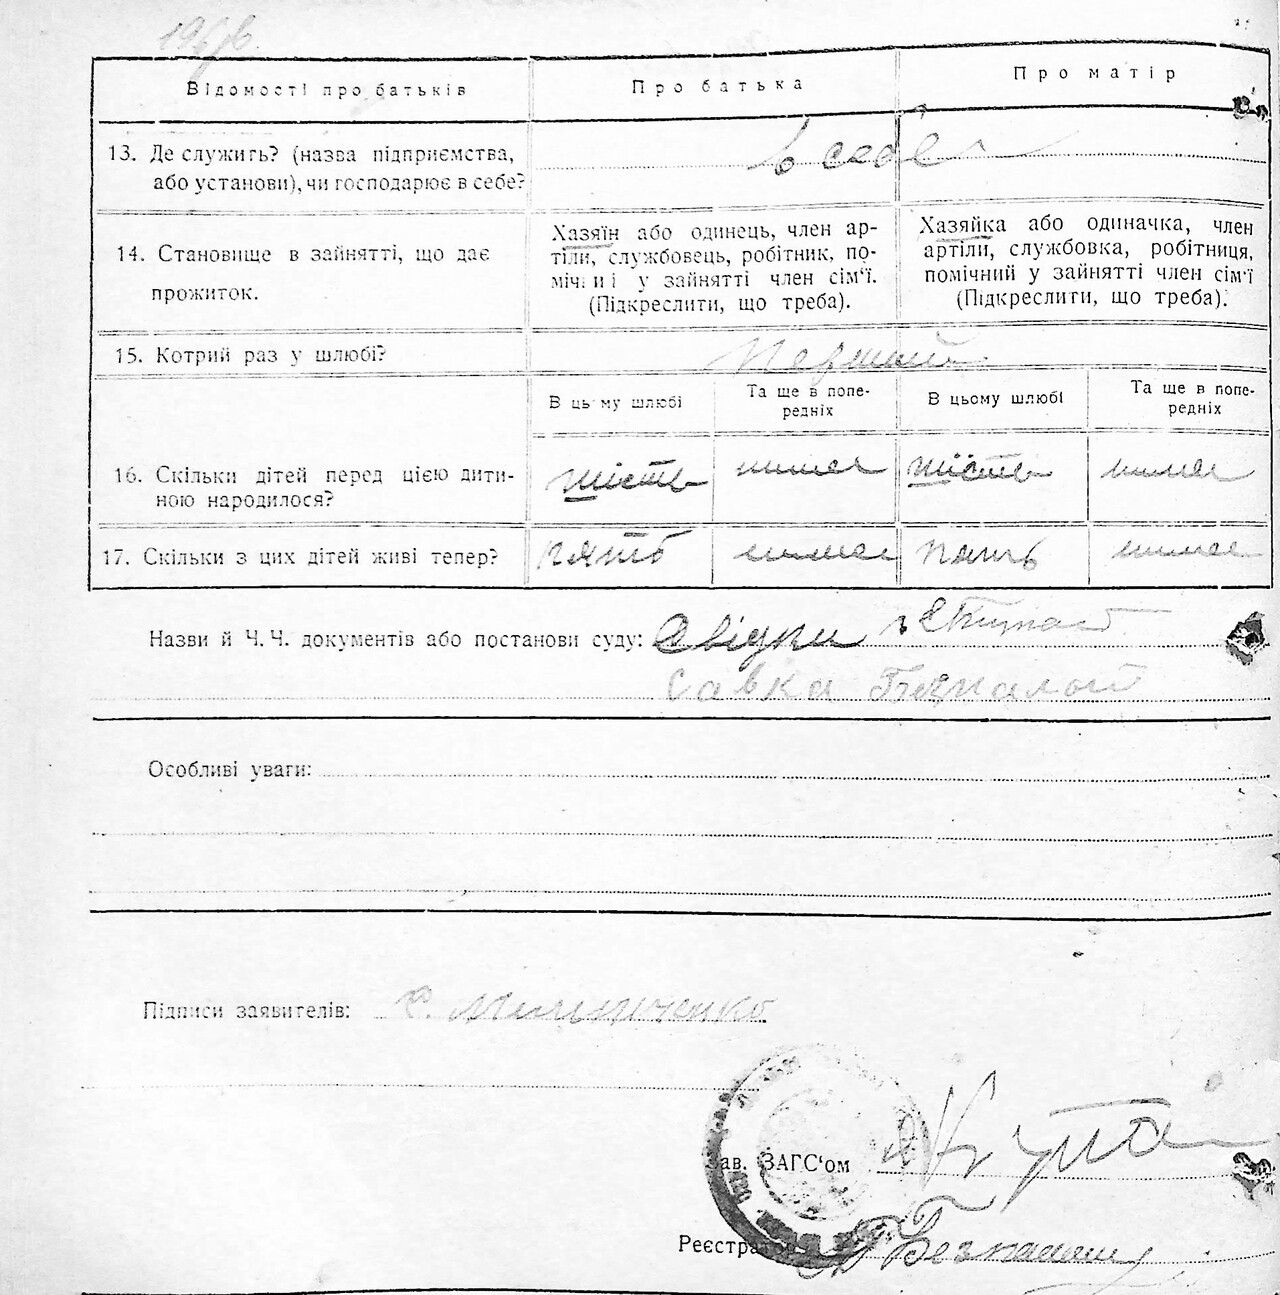 Відомості про батьків
Про батька
Про матір
13. Де служить? (назва підприємства,
або установи), чи господарює в себе?
в себе
14. Становище в зайнятті, що дає
прожиток.
Хазяїн або одинець, член ар-
тіли, службовець, робітник, по-
мічниі у зайнятті член сім'ї.
(Підкреслити, що треба).
Хазяйка або одиначка, член
артіли, службовка, робітниця,
помічний у зайнятті член сім'ї
(Підкреслити, що треба).
15. Котрий раз у шлюбі?
Перший
В цьму шлюбі
Та ще в попе-
редніх
В цьому шлюбі
Та ще в попе-
редніх
16. Скільки дітей перед цією дити-
ною народилося?
шість
немає
шість
немає
17. Скільки з цих дітей живі тепер?
пять
немає
пать
немає
Назви й Ч.Ч. документів або постанови суду: Свідки
Савка Безпалый
Особливі уваги:
Підписи заявителів: С. Мельниченко
Зав. ЗАГС'ом
Реєстратор